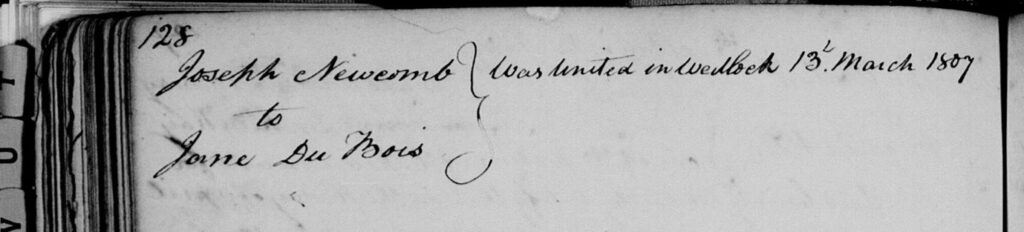 128
Joseph Newcomb } Was United in Wedlock 13th March 1807
to
Jane Du Bois